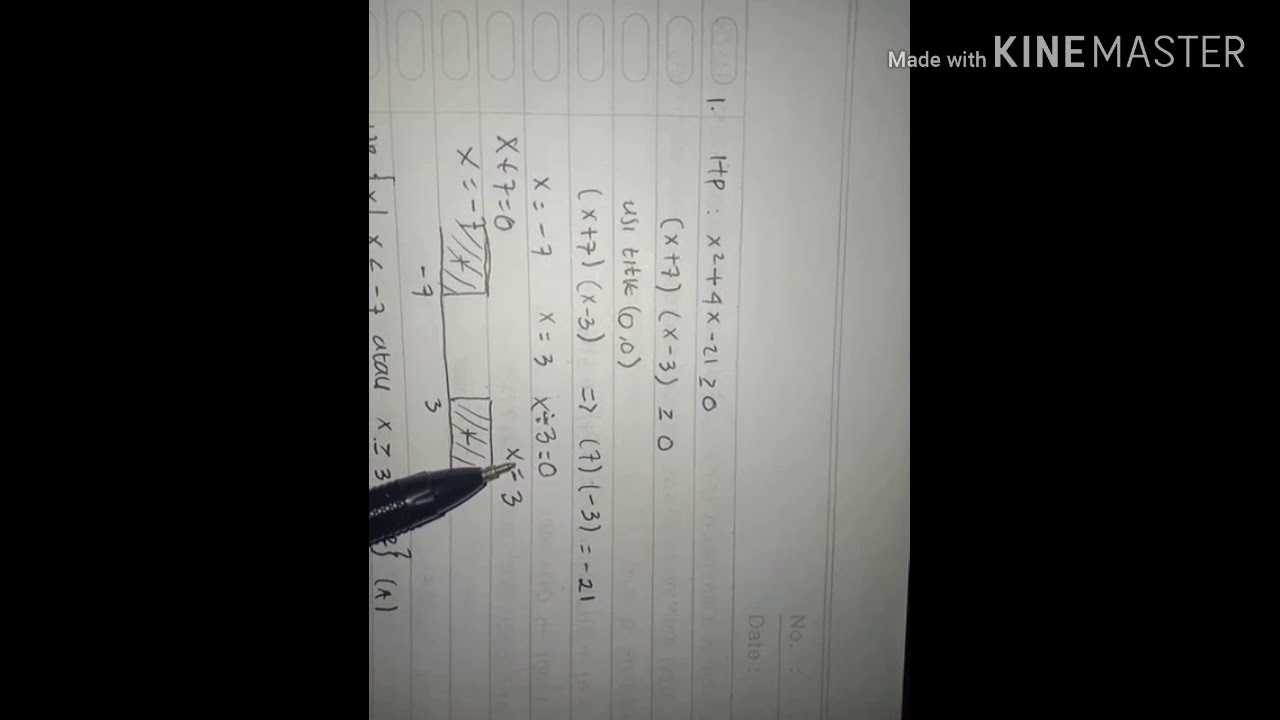 Made with KINEMASTER
No. :
Date :
1. Hp : x²+4x-21 ≥ 0
(x+7) (x-3) ≥ 0
uji titik (0,0)
(x+7) (x-3) => (7) (-3) = -21
x = -7 x = 3 x-3=0
x+7=0 x = 3
x = -7 + +
-7 3
{x| x ≤ -7 atau x ≥ 3 } (A)